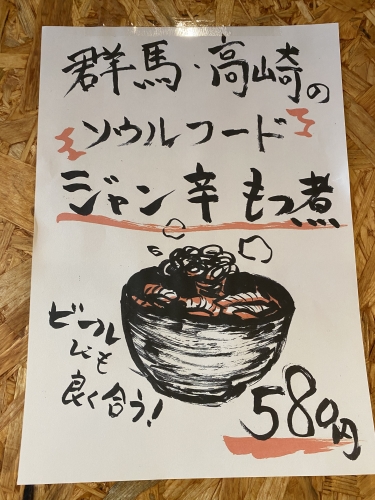 群馬・高崎の
ソウルフード
ジャン辛もつ煮
ビール
にも
良く合う!
580円